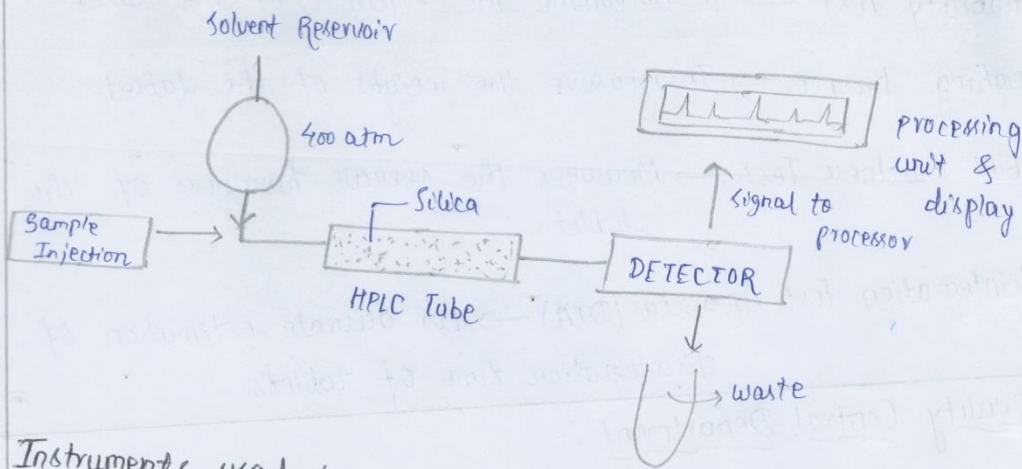 Solvent Reservoir
400 atm
Sample
Injection
Silica
HPLC Tube
DETECTOR
signal to
processor
processing
unit &
display
waste
Instruments